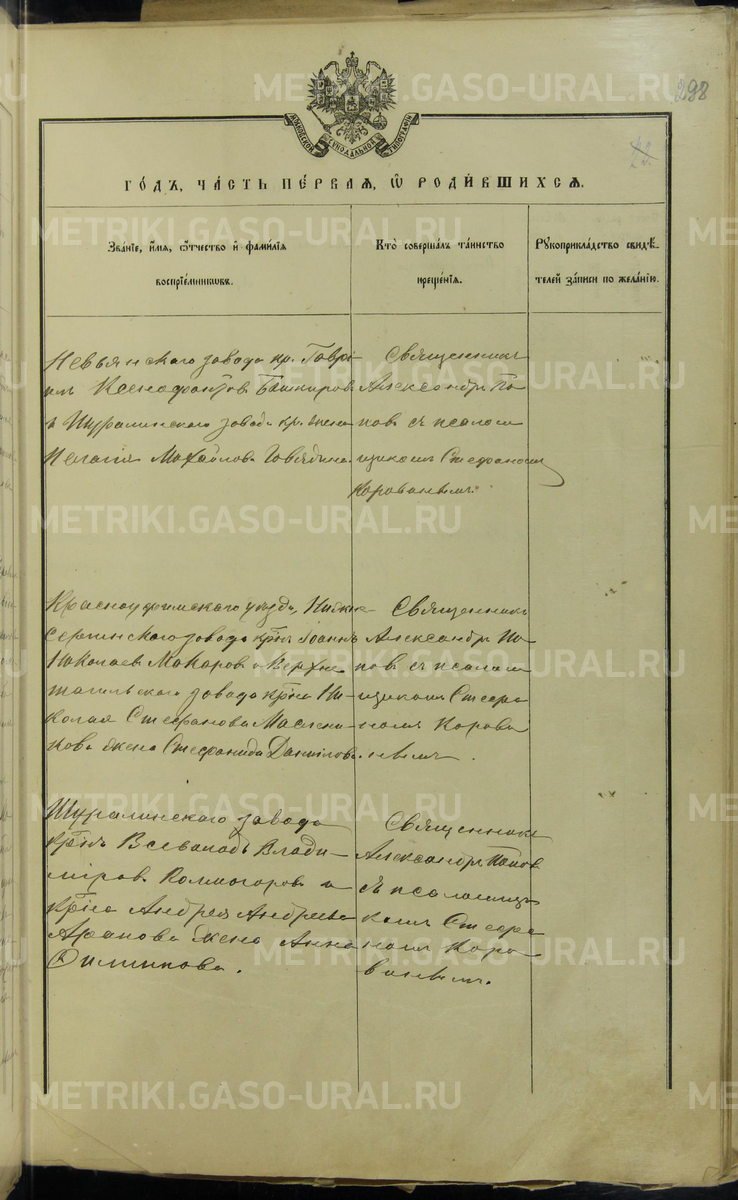 298
22.
МОСКОВСКОЙ СѴНОДАЛЬНОЙ ТИПОГРАФІИ
ГО́ДЪ, ЧА́СТЬ ПЕ́РВАЯ, Ѡ҆ РОДИ́ВШИХСЯ.
Зва́нїе, и҆́мя, ѻ҆́тчество и҆ фами́лїя
воспрїе́мниковъ.
Кто̀ соверша́лъ та́инство
креще́нїя.
Рꙋкоприкла́дство свидѣ́-
телей за́писи по жела́нїю.
Невьянскаго завода кр. Гаврі-
илъ Ксенофонтовъ Башкировъ
и Шуралинскаго завода кр. жена
Пелагія Михайлова Говядина
Священникъ
Александръ По-
повъ съ псалом
щикомъ Стефаномъ
Короваевымъ.
Красноуфимскаго уѣзда, Нижне-
Сергинскаго завода кр̃нъ Іоаннъ
Николаевъ Макаровъ и Верхне
тагильскаго завода кр̃на Ни-
колая Стефанова Маслен
кова жена Стефанида Данилова.
Священникъ
Александръ По-
повъ съ псалом
щикомъ Стефа
номъ Корова
евымъ.
Шуралинскаго завода
кр̃нъ Всеволодъ Влади-
міровъ Колмогоровъ и
кр̃на Андрея Андреева
Арапова жена Анна
Филиппова.
Священникъ
Александръ Поповъ
съ псаломщи
комъ Стефа
номъ Коро
ваевымъ.
METRIKI.GASO-URAL.RU